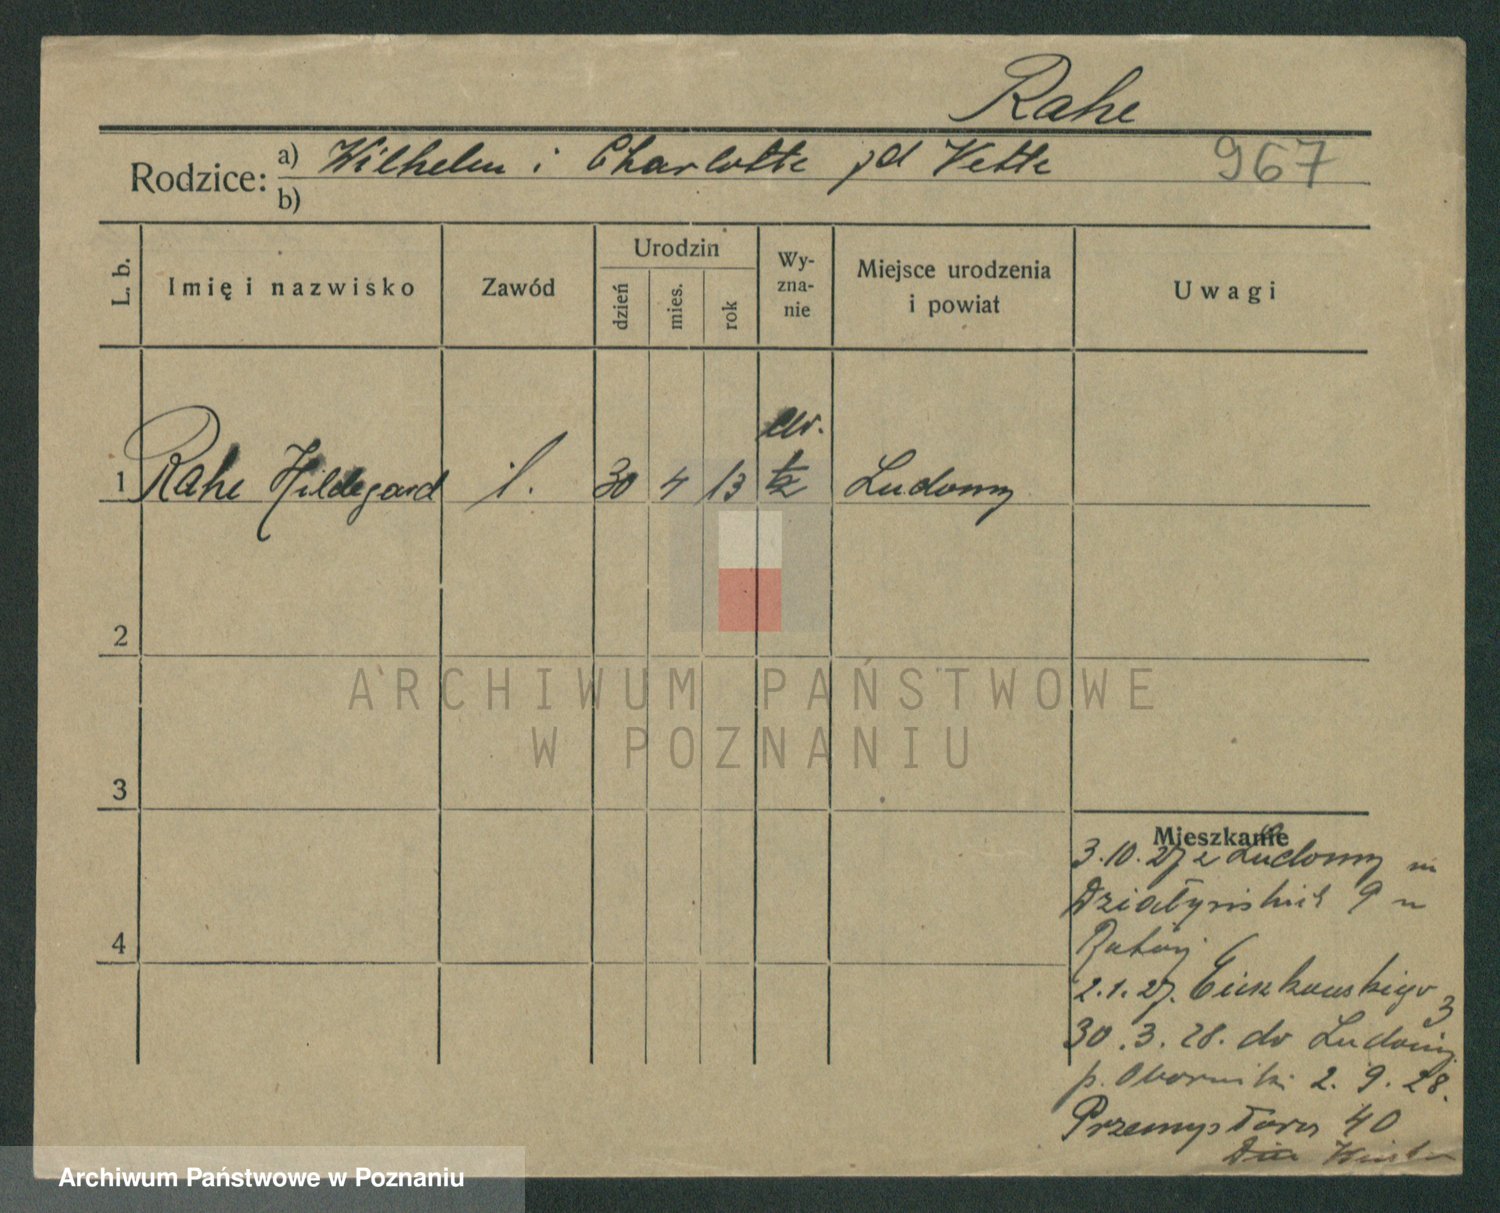 Rahe
Rodzice: a) Wilhelm i Charlotte Vette 967
b)
L. b. Imię i nazwisko Zawód Urodzin dzień mies. rok Wyznanie Miejsce urodzenia i powiat Uwagi
ew.
1 Rahe Hildegard 30 4 13 Ludomy
2
3
4
Mieszkanie
3.10.27 z Ludomy
Działyńskich 9
2.1.27.
30.3.28. do Ludomy
p. Oborniki 2.9.28.
Przemysłowa 40
ARCHIWUM PAŃSTWOWE
W POZNANIU
Archiwum Państwowe w Poznaniu